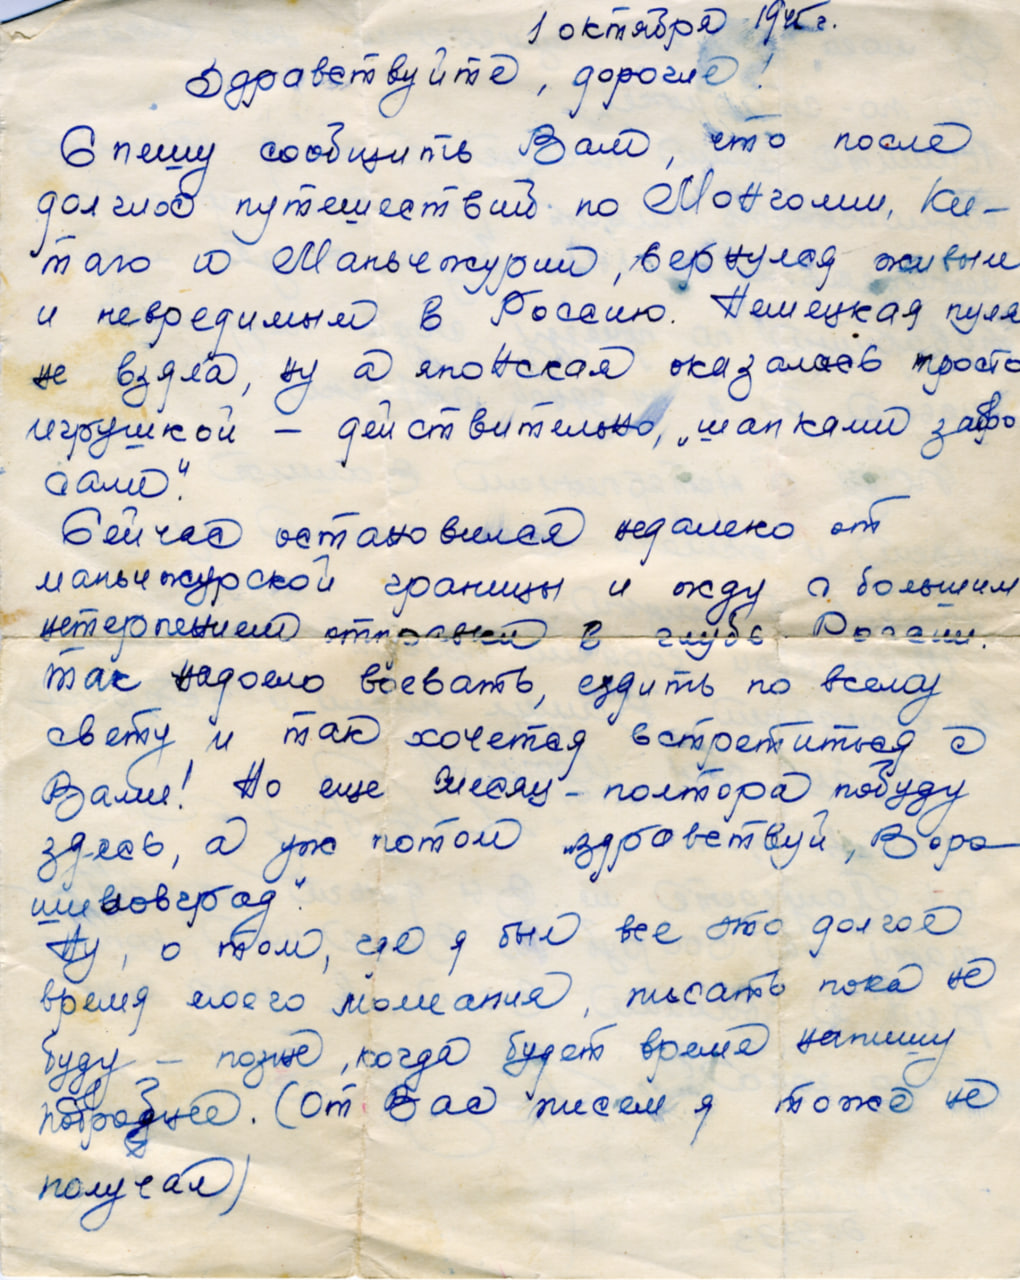 1 октября 1945г.
Здравствуйте, дорогие!
Спешу сообщить Вам, что после
долгих путешествий по Монголии, Ки-
таю и Маньчжурии, вернулся живым
и невредимым в Россию. Немецкая пуля
не взяла, ну а японская оказалась просто
игрушкой – действительно, „шапками забро
сали".
Сейчас остановился недалеко от
маньчжурской границы и жду с большим
нетерпением отправки в глубь России.
Так надоело воевать, ездить по всему
свету и так хочется встретиться с
Вами! Но еще месяц – полтора побуду
здесь, а уж потом „здравствуй, Воро-
шиловград".
Ну, о том, где я был все это долгое
время моего молчания, писать пока не
буду – позже, когда будет время напишу
подробнее. (От Вас писем я тоже не
получал)